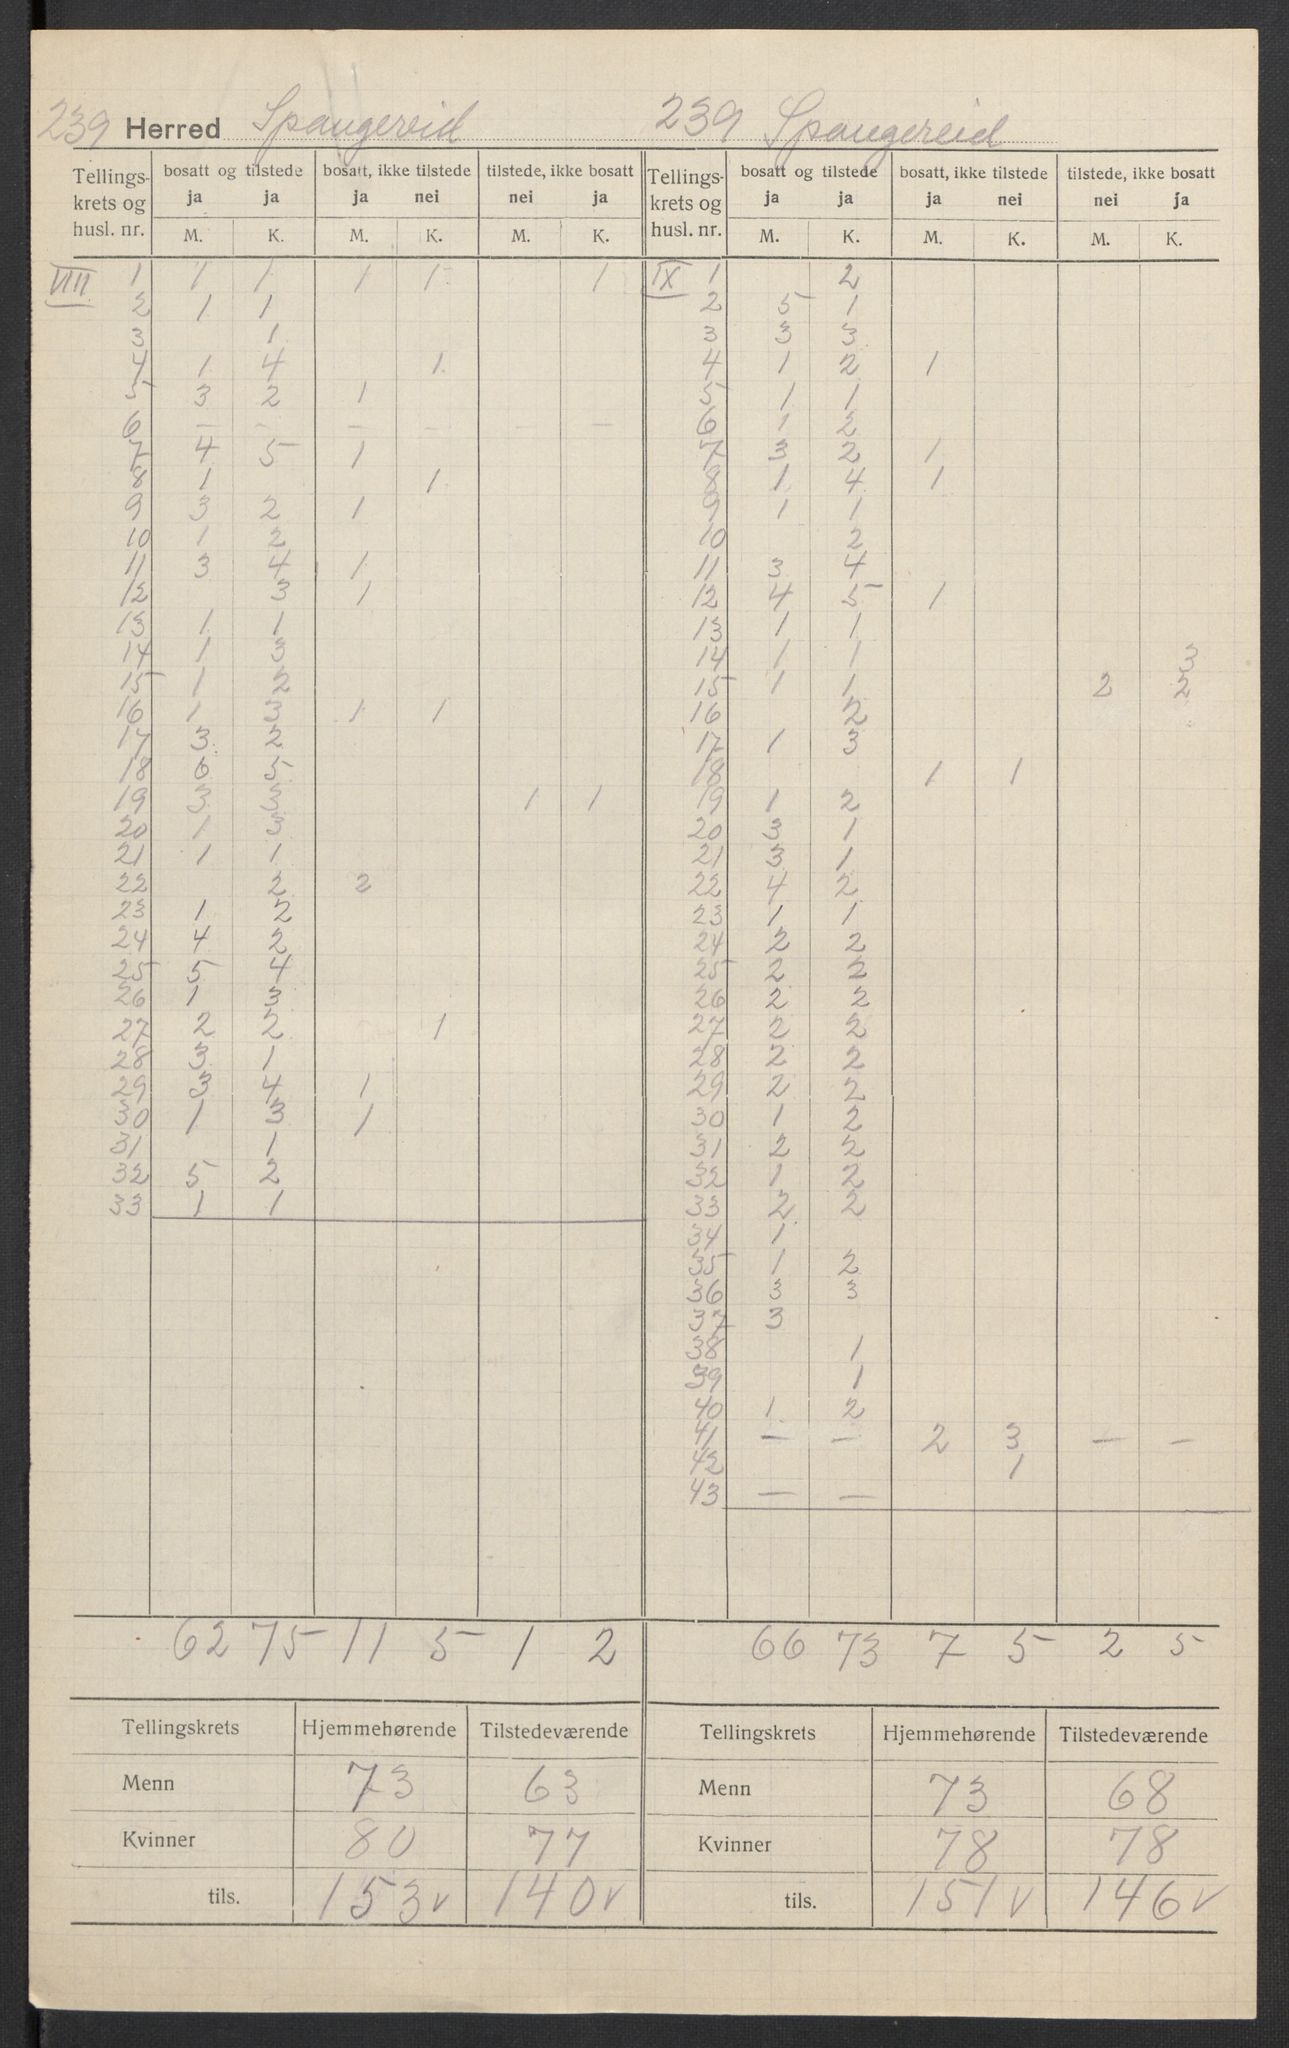 239 Herred Spangereid 239 Spangereid
Tellings- bosatt og tilstede bosatt, ikke tilstede tilstede, ikke bosatt Tellings- bosatt og tilstede bosatt, ikke tilstede tilstede, ikke bosatt
krets og ja ja ja nei nei ja krets og ja ja ja nei nei ja
husl. nr. M. K. M. K. M. K. husl. nr. M. K. M. K. M. K.
VIII 1 1 1 1 1 1 IX 1 2
2 1 1 2 5 1
3 1 3 3 3
4 1 4 1 4 1 2 1
5 3 2 1 5 1 1
6 – – – – – – 6 1 2
7 4 5 1 7 3 2 1
8 1 1 8 1 4 1
9 3 2 1 9 1 1
10 1 2 10 2
11 3 4 1 11 3 4
12 3 1 12 4 5 1
13 1 1 13 1 1
14 1 3 14 1 1 3
15 1 2 15 1 1 2 2
16 1 3 1 1 16 2
17 3 2 17 1 3
18 6 5 18 1 1
19 3 3 1 1 19 1 2
20 1 3 20 3 1
21 1 1 21 3 1
22 2 2 22 4 2
23 1 2 23 1 1
24 4 2 24 2 2
25 5 4 25 2 2
26 1 3 26 2 2
27 2 2 1 27 2 2
28 3 1 28 2 2
29 3 4 1 29 2 2
30 1 3 1 30 1 2
31 1 31 2 2
32 5 2 32 1 2
33 1 1 33 2 2
34 1
35 1 2
36 3 3
37 3
38 1
39 1
40 1 2
41 – – 2 3 – –
42 1
43 – –
62 75 11 5 1 2 66 73 7 5 2 5
Tellingskrets Hjemmehørende Tilstedeværende Tellingskrets Hjemmehørende Tilstedeværende
Menn 73 63 Menn 73 68
Kvinner 80 77 Kvinner 78 78
tils. 153 v 140 v tils. 151 v 146 v